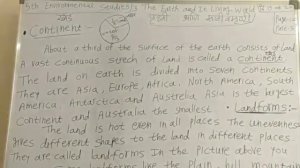 5th Environmental Studies The Earth and Its Living World
Continent :-
About a third of the surface of the earth consists of land
A vast continuous strech of land is called a continent.
The land on earth is divided into Seven Continents
They are Asia, Europe, Africa, North America, South
America, Antarctica and Australia Asia is the largest
Continent and Australia the smallest. Landforms:-
The land is not even in all places The unevenness
gives different shapes to the land in different places
They are called landforms In the picture above you
landforms like the Plain, hill